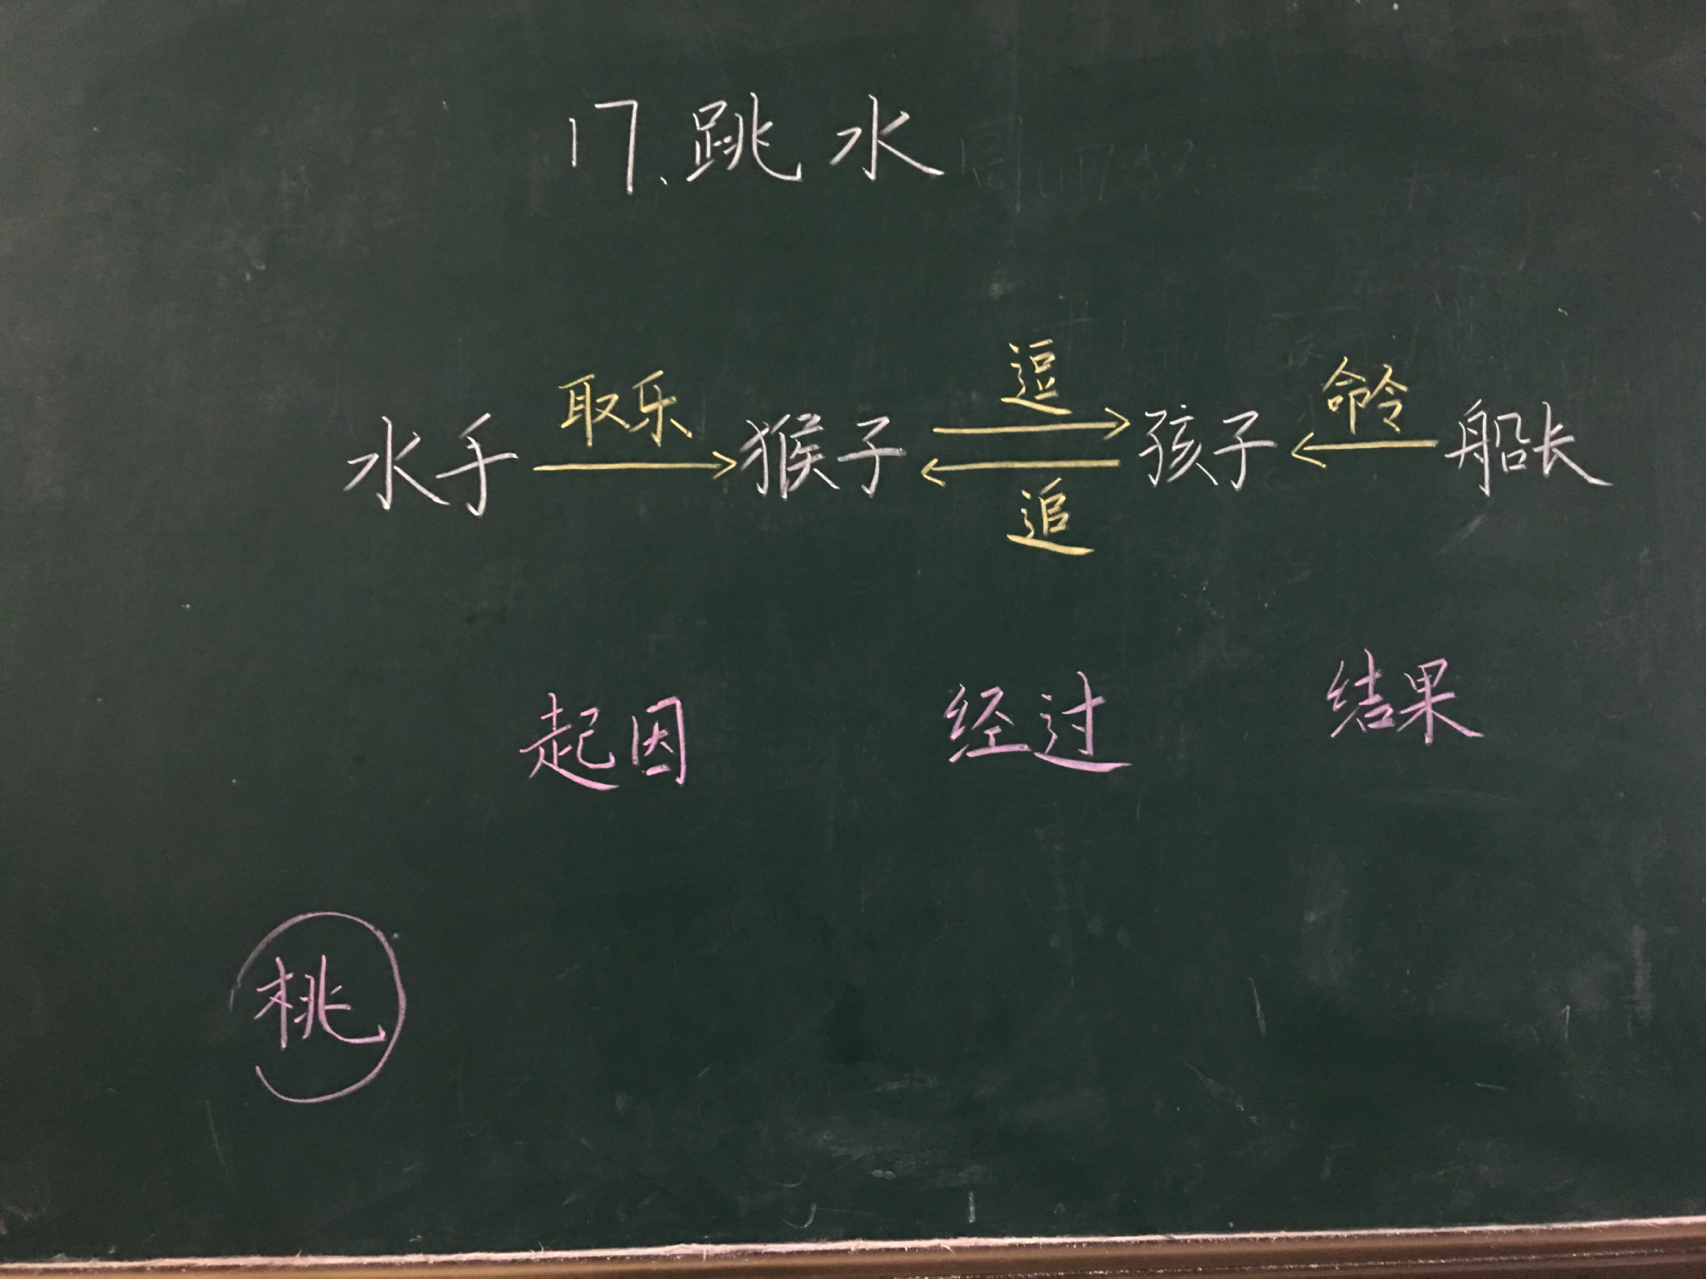 17.跳水
水手 取乐 猴子 逗 追 孩子 命令 船长
起因 经过 结果
桃